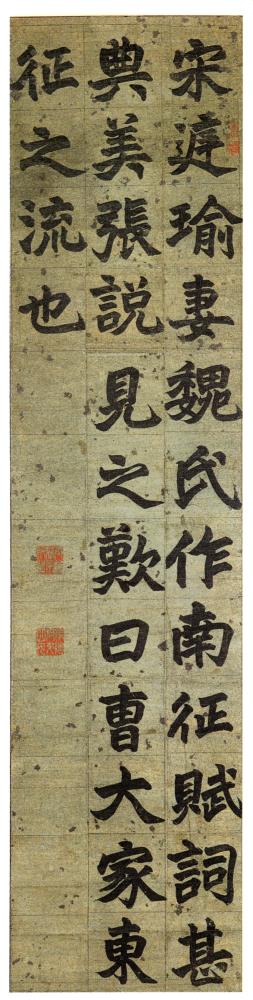 宋庭瑜妻魏氏作南征賦詞甚
典美張説見之歎曰曹大家東
征之流也